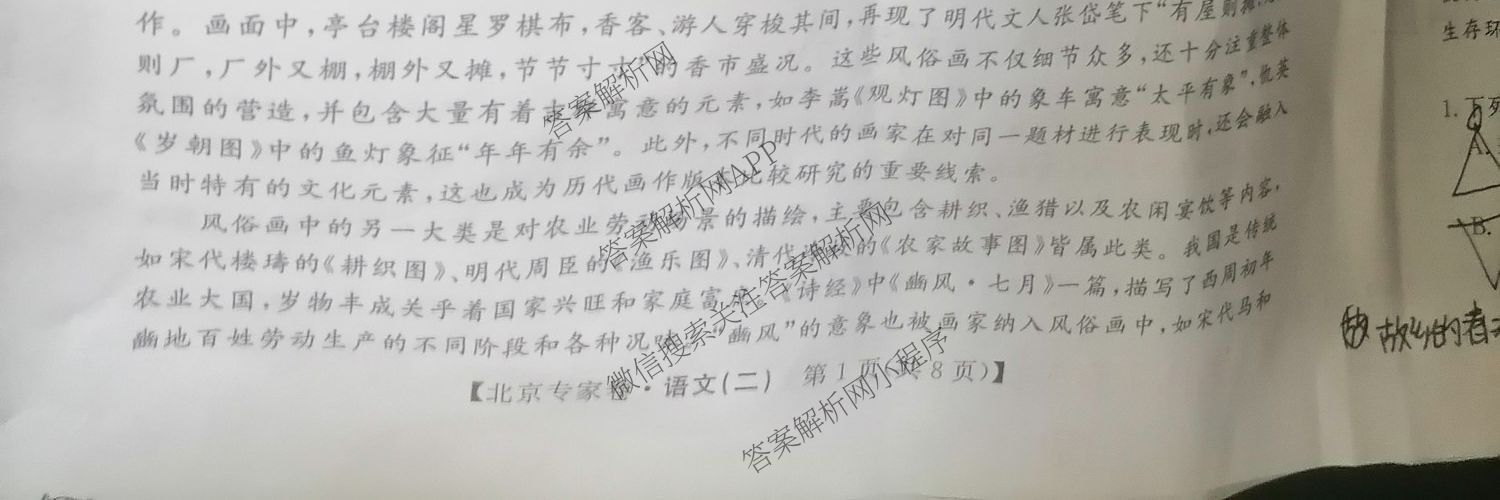 作。画面中,亭台楼阁星罗棋布,香客、游人穿梭其间,再现了明代文人张岱笔下“有屋则摊,
则厂,厂外又棚,棚外又摊,节节寸寸”的香市盛况。这些风俗画不仅细节众多,还十分注重整体
氛围的营造,并包含大量有着寓意的元素,如李嵩《观灯图》中的象车寓意“太平有象”,仇英
《岁朝图》中的鱼灯象征“年年有余”。此外,不同时代的画家在对同一题材进行表现时,还会融入
当时特有的文化元素,这也成为历代画作版本比较研究的重要线索。
风俗画中的另一大类是对农业劳动场景的描绘,主要包含耕织、渔猎以及农闲宴饮等内容,
如宋代楼璹的《耕织图》、明代周臣的《渔乐图》、清代的《农家故事图》皆属此类。我国是传统
农业大国,岁物丰成关乎着国家兴旺和家庭富《诗经》中《豳风·七月》一篇,描写了西周初年
豳地百姓劳动生产的不同阶段和各种况“豳风”的意象也被画家纳入风俗画中,如宋代马和
【北京专家卷·语文(二) 第1页(共8页)】
生存环
1.下列
A.
B.
故
的者
答案解析网
答案解析网APP
微信搜索关注答案解析网
答案解析网小程序